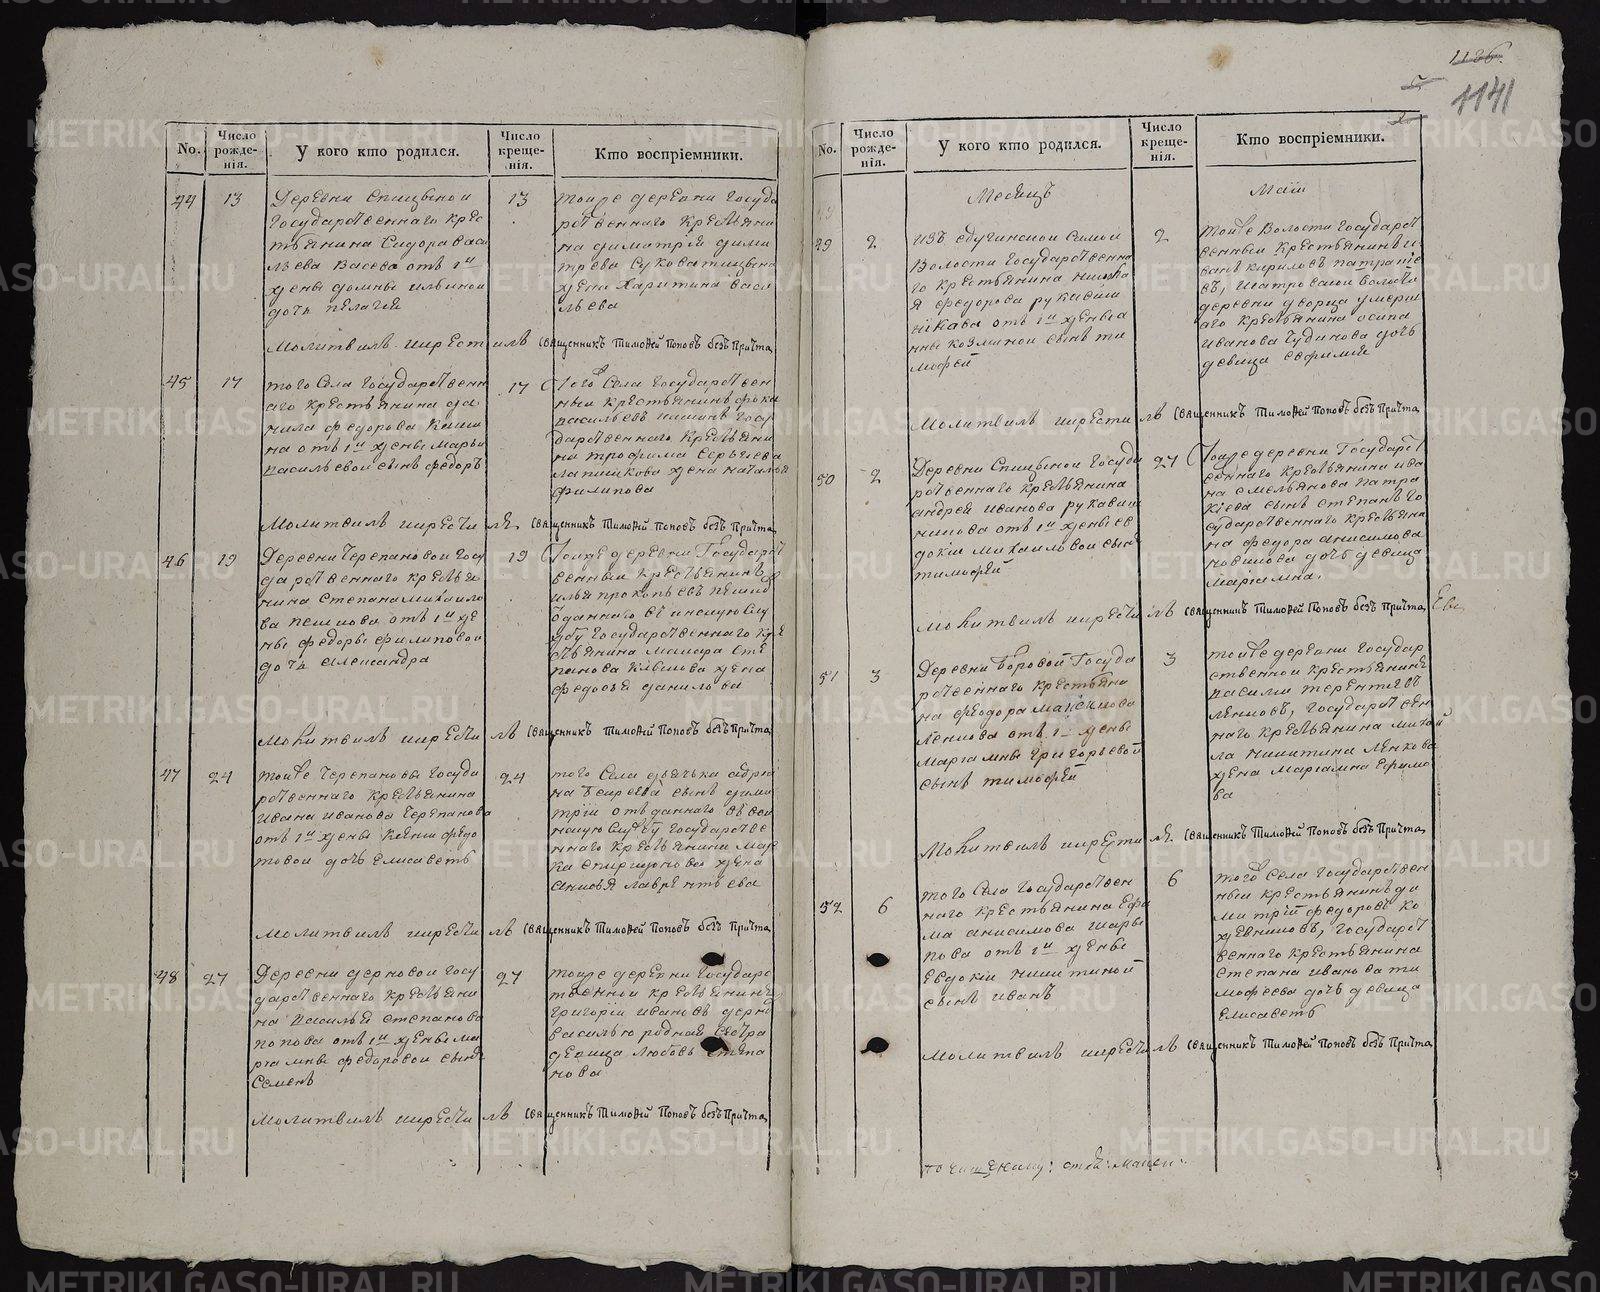 1186.
1141
No.
Число рожде-нія.
У кого кто родился.
Число креще-нія.
Кто воспріемники.
44
13
Деревни Спицыной
Государственнаго крес
тьянина Сидора Васи
льева Васева отъ 1й
жены домны ильиной
дочь пелагея
13
тойже деревни Госуда
рственнаго крестьяни
на димитрія дими
трева
жена Харитина васи
льева
Молитвилъ икрестилъ Священникъ Тимофей Поповъ безъ Причта,
45
17
того Села Государственн
аго крестьянина да
нила федорова
на отъ 1й жены Марьи
васильевой сынъ федоръ
17
Того Села Государствен
ный крестьянинъ фока
васильевъ Госу
дарственнаго крестьяни
на трофима Сергиева
лапшихова жена наталья
филипова
Молитвилъ икрестилъ Священникъ Тимофей Поповъ безъ Причта,
46
19
Деревни Черепановой Госу
дарственнаго крестья
нина Степана Михаило
ва отъ 1й же
ны федоры филиповой
дочь александра
19
Тойже деревни Государст
венный крестьянинъ
илья прокопьевъ
отданнаго въ инскую слу
жбу государственнаго кре
стьянина Макара Сте
панова жена
федосья данильова
Молитвилъ икрестилъ Священникъ Тимофей Поповъ безъ Причта,
47
24
тойже Черепановы Госуда
рственнаго крестьянина
ивана иванова Черепанова
отъ 1й жены Ксении федо
товой дочь елисаветь
24
того Села дьячька адриа
на сынъ дими
трій отъ даннаго въ вои
нскую службу государстве
ннаго крестьянина Мар
ка спиридонова жена
анисья лаврентьева
Молитвилъ икрестилъ Священникъ Тимофей Поповъ безъ Причта,
48
27
Деревни дерновой госу
дарственнаго крестьяни
на Василья степанова
попова отъ 1й жены Ма
риамны федоровой сынъ
Семенъ
27
тойже деревни Государс
твенной крестьянинъ
григорій ивановъ
василью родная сестра
девица любовь степа
нова
Молитвилъ икрестилъ Священникъ Тимофей Поповъ безъ Причта,
No.
Число рожде-нія.
У кого кто родился.
Число креще-нія.
Кто воспріемники.
Месяцъ
Маій
49
2
Волости Государственна
го крестьянина
я федорова рукавиш
никова отъ 1й жены а
нны козминой сынъ ти
мофей
2
Тойже Волости Государст
венный крестьянинъ и
ванъ кириловъ патракие
въ, Шатровской волости
деревни дворца умерш
аго крестьянина осипа
иванова Чудинова дочь
девица евфимия
Молитвилъ икрестилъ Священникъ Тимофей Поповъ безъ Причта,
50
2
Деревни Спицыной Госуда
рственнаго крестьянина
андрея иванова рукавиш
никова отъ 1й жены ев
докии михаиловой сынъ
тимофей
27
Тойже деревни Государст
веннаго крестьянина ива
на емельянова патра
киева сынъ степанъ Го
сударственнаго крестьяни
на федора анисимова
новикова дочь девица
мариамна,
Молитвилъ икрестилъ Священникъ Тимофей Поповъ безъ Причта,
51
3
Деревни боровой Госуда
рственнаго крестьяни
на феодора Максимова
Ленкова отъ 1й жены
Мариамны Григорьевой
сынъ тимофей
3
тойже деревни Государ
ственной крестьянинъ
василій терентьевъ
Ленковъ, Государствен
наго крестьянина михай
ла никитина Ленкова
жена Мариамна Ефимо
ва
Молитвилъ икрестилъ Священникъ Тимофей Поповъ безъ Причта,
52
6
того Села Государствен
наго крестьянина Ефи
ма анисимова шары
пова отъ 1й жены
Евдокіи никитиной
сынъ иванъ
6
того Села государствен
ный крестьянинъ ди
митрій федоровъ ко
жевниковъ, Государст
веннаго крестьянина
степана иванова ти
мофеева дочь девица
Елисаветь
Молитвилъ икрестилъ Священникъ Тимофей Поповъ безъ Причта,
METRIKI.GASO-URAL.RU